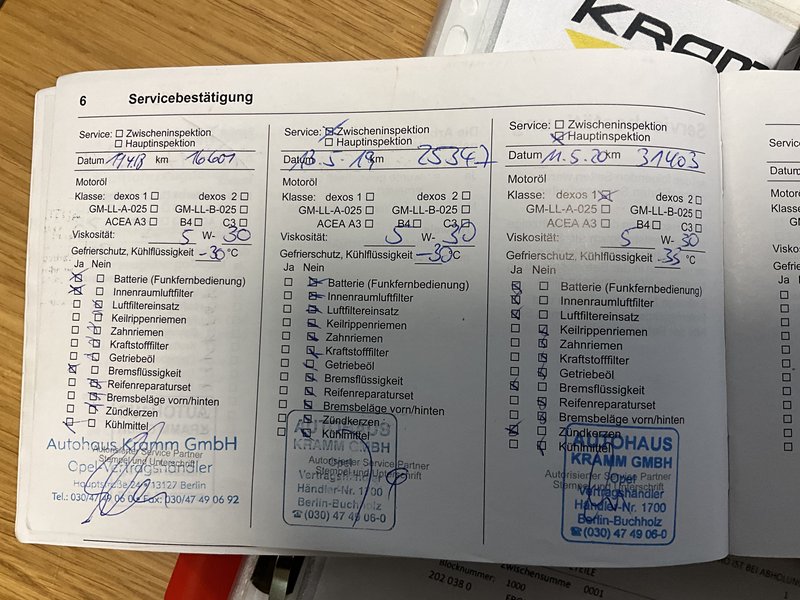 KRAMM
6 Servicebestätigung
Service: Zwischeninspektion
Hauptinspektion
Datum km 16601
Motoröl
Klasse: dexos 1 dexos 2
GM-LL-A-025 GM-LL-B-025
ACEA A3 B4 C3
Viskosität: 5 W- 30
Gefrierschutz, Kühlflüssigkeit -30 °C
Ja Nein
Batterie (Funkfernbedienung)
Innenraumluftfilter
Luftfiltereinsatz
Keilrippenriemen
Zahnriemen
Kraftstofffilter
Getriebeöl
Bremsflüssigkeit
Reifenreparaturset
Bremsbeläge vorn/hinten
Zündkerzen
Kühlmittel
Autohaus Kramm GmbH
Autorisierter Service Partner
Opel-Vertragshändler
Stempel und Unterschrift
Hauptstraße 13127 Berlin
Tel.: 030/47 49 06 0 Fax: 030/47 49 06 92
Service: Zwischeninspektion
Hauptinspektion
Datum 13.5.19 km 25347
Motoröl
Klasse: dexos 1 dexos 2
GM-LL-A-025 GM-LL-B-025
ACEA A3 B4 C3
Viskosität: 5 W- 30
Gefrierschutz, Kühlflüssigkeit -30 °C
Ja Nein
Batterie (Funkfernbedienung)
Innenraumluftfilter
Luftfiltereinsatz
Keilrippenriemen
Zahnriemen
Kraftstofffilter
Getriebeöl
Bremsflüssigkeit
Reifenreparaturset
Bremsbeläge vorn/hinten
Zündkerzen
Kühlmittel
AUTOHAUS
KRAMM GMBH
Autorisierter Service Partner
Opel
Stempel und Unterschrift
Vertragshändler
Händler-Nr. 1700
Berlin-Buchholz
☎(030) 47 49 06-0
Service: Zwischeninspektion
Hauptinspektion
Datum 11.5.20 km 31403
Motoröl
Klasse: dexos 1 dexos 2
GM-LL-A-025 GM-LL-B-025
ACEA A3 B4 C3
Viskosität: 5 W- 30
Gefrierschutz, Kühlflüssigkeit -35 °C
Ja Nein
Batterie (Funkfernbedienung)
Innenraumluftfilter
Luftfiltereinsatz
Keilrippenriemen
Zahnriemen
Kraftstofffilter
Getriebeöl
Bremsflüssigkeit
Reifenreparaturset
Bremsbeläge vorn/hinten
Zündkerzen
Kühlmittel
AUTOHAUS
KRAMM GMBH
Autorisierter Service Partner
Opel
Stempel und Unterschrift
Vertragshändler
Händler-Nr. 1700
Berlin-Buchholz
☎(030) 47 49 06-0
Motoröl
Klasse:
Ja Nein
Blocknummer: Zwischensumme 0001
202 038 0 1000